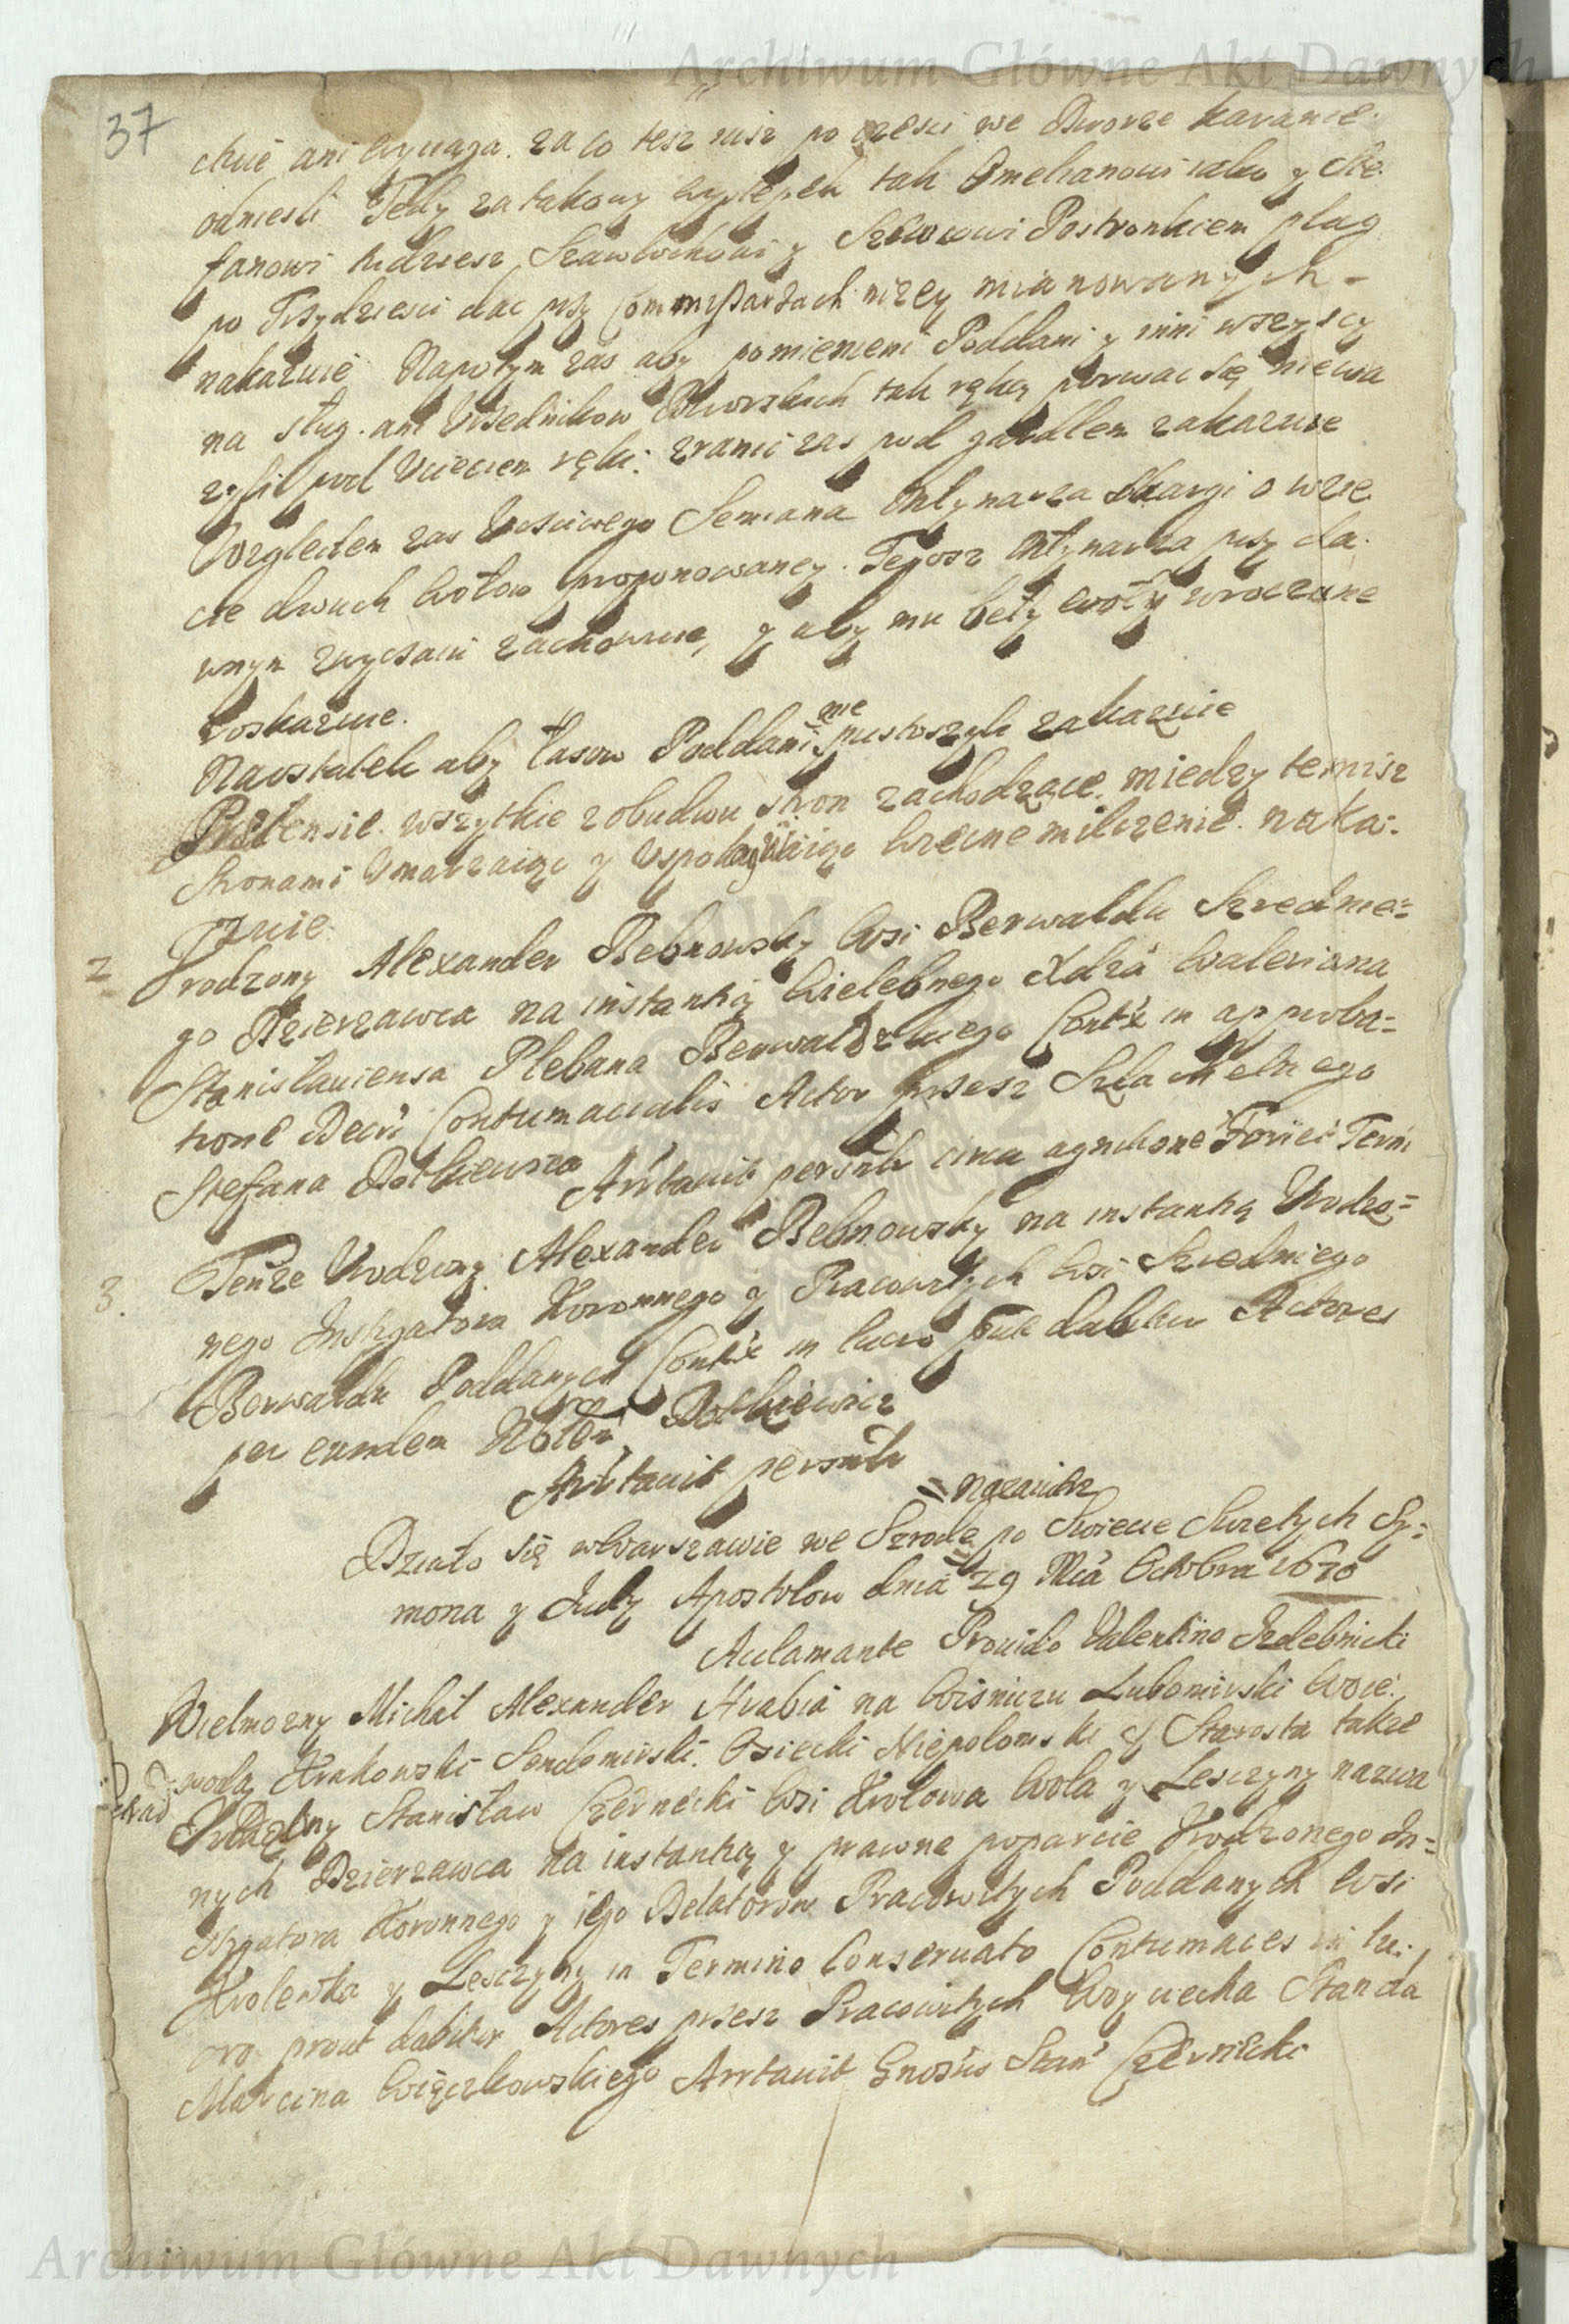 Archiwum Główne Akt Dawnych
37
ani wyciąga. za co tesz iusz po części we Dworze karanie.
odniesli Tedy za takowy występek tak Omelianowi iako y Ste.
fanowi tudziesz y Postronkiem plag
po Trzydziesci dac przy Commissarzach nizey mianowanych -
nakazuie Napotym zas aby pomienieni Poddani y inni wszyscy
na sług. ani Urzednikow Dworskich tak ręką porwac się niewa
zyli pod Ucieciem ręki. zranic zas pod gardlem zakazuie
Wzgledem zas Uczciwego Semiana Młynarza skargi o wzię.
cie dwuch wołow proponowaney. Tegosz Młynarza przy da.
wnym zwyczaiu zachowuie, y aby mu beły woły wrocone
roskazuie.
Naostatek aby lasow Poddani nie pustoszyli zakazuie
Prætensie. wszytkie z obudwu stron zachodzące. miedzy temisz
Stronami Umarzaiąc y Uspokaiaiąc wieczne milczenie. naka:
zuie.
2 Urodzony Alexander Bebnowsky wsi Berwaldu Szrednie=
go Dzierzawca na instantią Wielebnego Xdza Waleriana
Stanislaviensa Plebana Berwaldzkiego Cont'x in approba=
tione Decr'i Contumacialis Actor przesz Szlachetnego
Stefana Rotkiewicza
Arr'tavit person'lr circa agnitione
3. Tenze Urodzony Alexander Bebnowsky na instantią Urodzo=
nego Instigatora Koronnego y Pracowitych wsi Szredniego
Berwaldu Poddanych Cont'x in lucro prout dabitur Actores
per eundem Nobilem Rotkiewicz
Arr'tavit person'lr
Działo się w Warszawie we Szrodę = nazaiutrz = po Swiecie Swietych Sy=
mona y Judy Apostolow dnia 29 M'ca Octobra 1670
Aclamante Provido Valentino Szlebnicki
Wielmozny Michał Alexander Hrabia na Wisniczu Lubomirski Woie.
woda Krakowski Sendomirski. Osiecki Niepolomski & Starosta takze
Urodzony Stanisław Czernecki wsi Krolowa Wola y Lesczyny nazwa
nych Dzierzawca na instantią y prawne poparcie Urodzonego In=
stigatora Koronnego y iego Delatorow Pracowitych Poddanych wsi
Krolewka y Lesczyny in Termino Conservato Contumaces in lu.
cro prout dabitur Actores przesz Pracowitych Woyciecha Standa
Marcina Więczkowskiego Arrtavit G'nosus Stan' Czernicki
Archiwum Główne Akt Dawnych